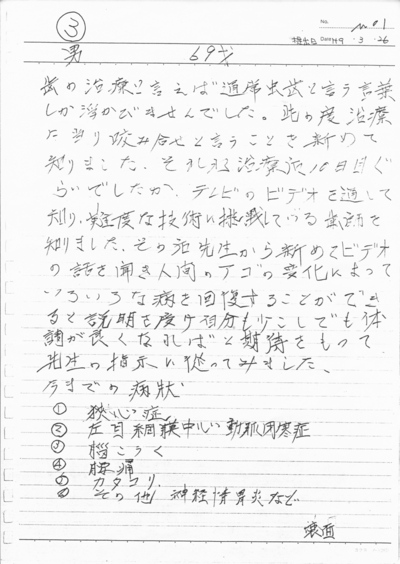 ③
No. No 1
提出日 Date H19・3・26
男 69才
歯の治療と言えば通常虫歯と言う言葉
しか浮かびませんでした。此の度治療
に当り咬み合せと言うことを初めて
知りました、それも治療後10日目ぐ
らいでしたか、テレビのビデオを通して
知り、難度な技術に挑戦している歯師を
知りました、その后先生から初めてビデオ
の話を聞き人間のアゴの変化によって
いろいろな病を回復することができ
ると説明を受け自分も少しでも体
調が良くなればと期待をもって
先生の指示に従ってみました、
今までの病状
① 狭心症
② 左目網膜中心動脈閉塞症
③ 脳こうく
④ 腰痛
⑤ カタコリ
⑥ その他 神経性胃炎など
裏面